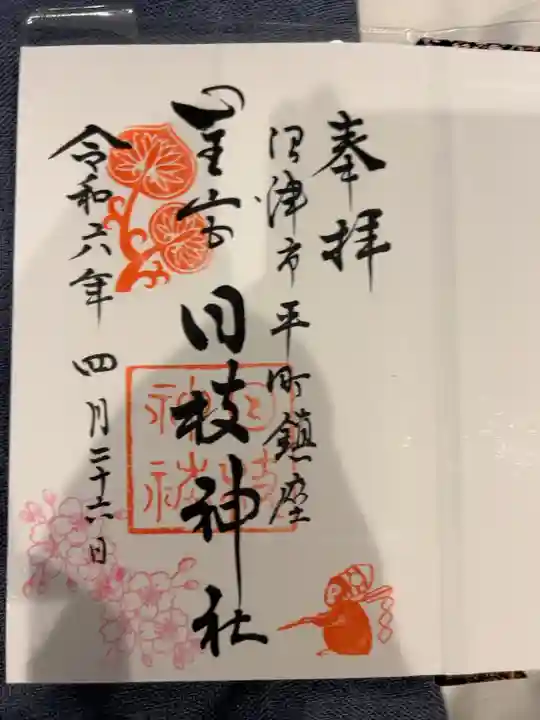 奉拝
沼津市平町鎮座
日枝神社
令和六年 四月二十六日
日枝
神社